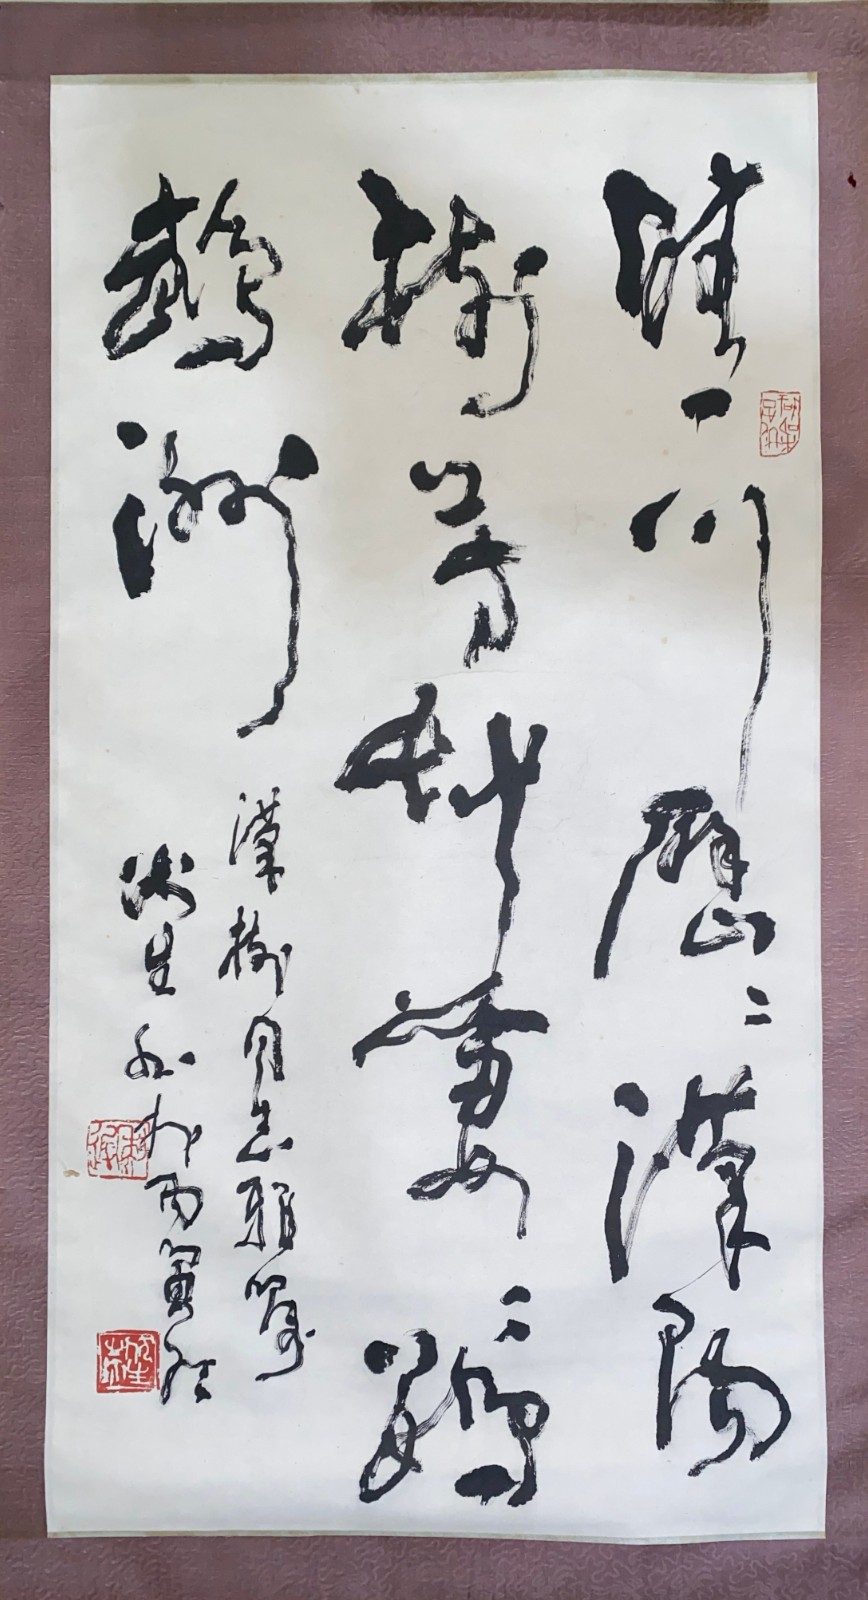 晴川歷〻漢陽
樹芳艸萋〻鸚
鵡洲
漢樹同志雅囑
生 丙寅秋